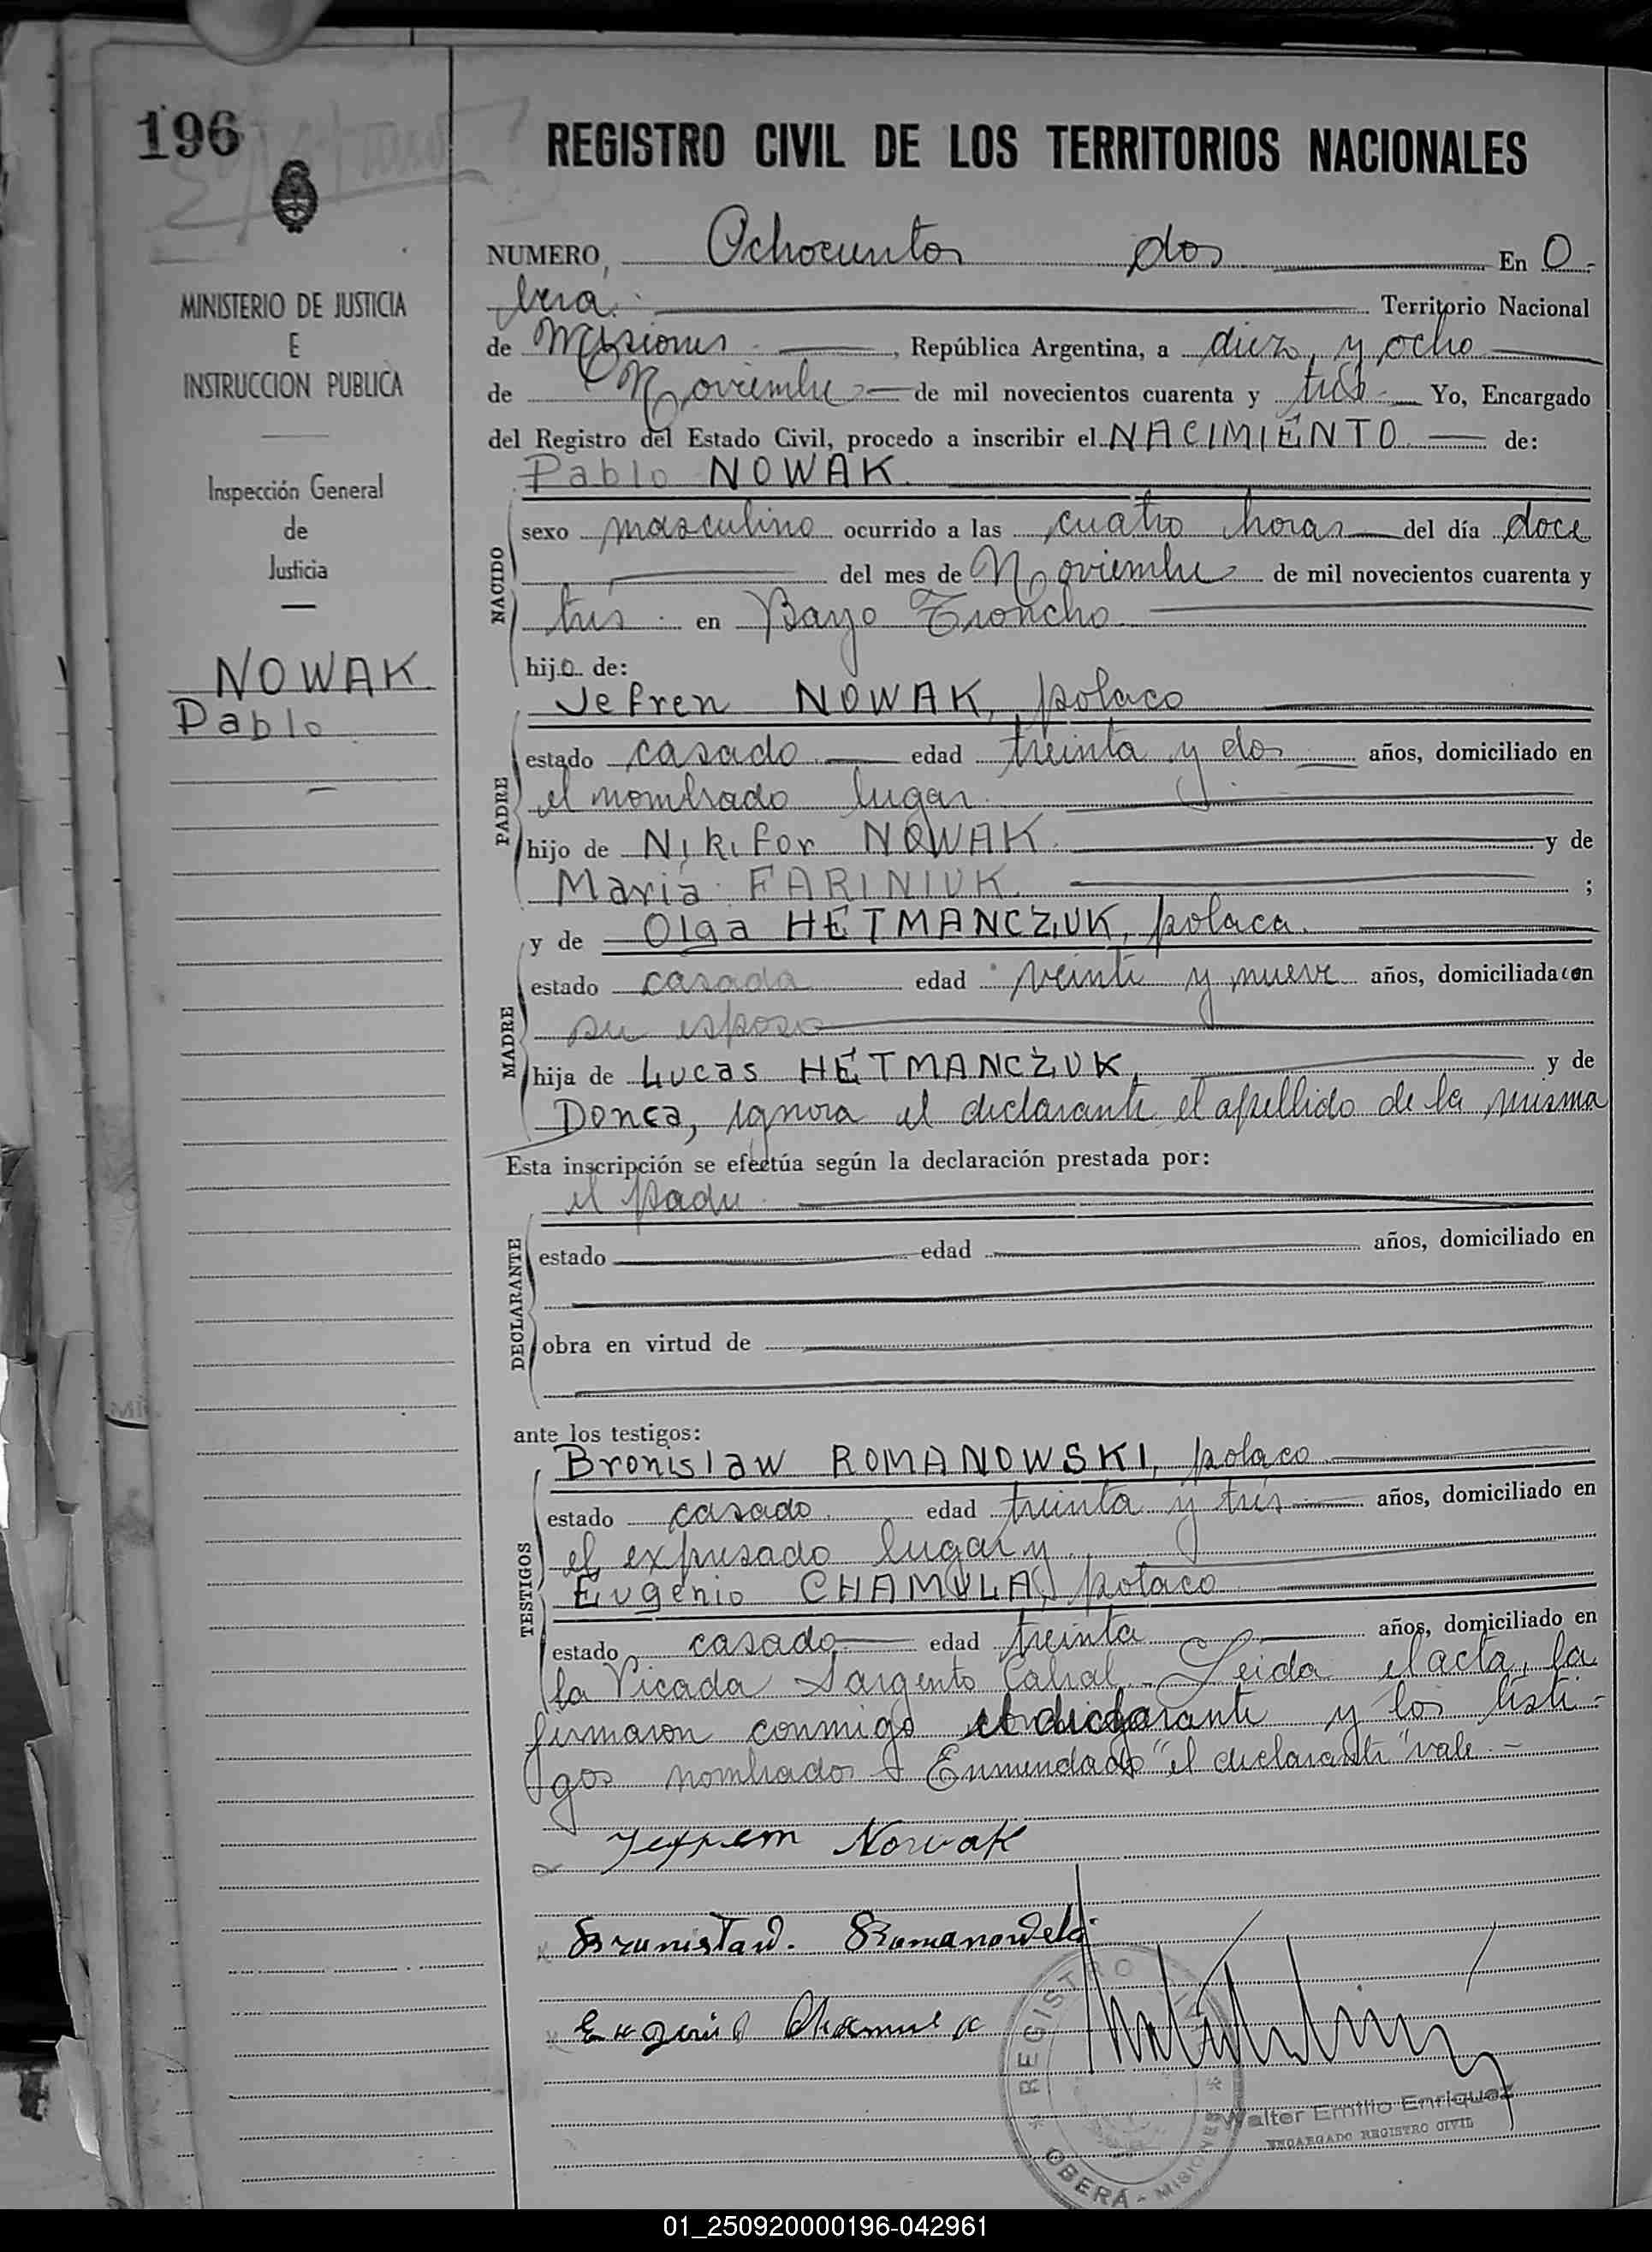 196
REGISTRO CIVIL DE LOS TERRITORIOS NACIONALES
MINISTERIO DE JUSTICIA
E
INSTRUCCION PUBLICA
Inspección General
de
Justicia
NOWAK
Pablo
NUMERO, Ochocientos dos En O-
bera. Territorio Nacional
de Misiones, República Argentina, a diez y ocho
de Noviembre de mil novecientos cuarenta y tres Yo, Encargado
del Registro del Estado Civil, procedo a inscribir el NACIMIENTO de:
Pablo NOWAK.
NACIDO
sexo masculino ocurrido a las cuatro horas del día doce
del mes de Noviembre de mil novecientos cuarenta y
tres en Bayo Troncho
hijo de:
Jefren NOWAK, polaco
PADRE
estado casado edad treinta y dos años, domiciliado en
el nombrado lugar.
hijo de Nikifor NOWAK. y de
Maria FARINIUK. ;
y de Olga HETMANCZUK, polaca.
MADRE
estado casada edad veinti y nueve años, domiciliada con
su esposo
hija de Lucas HETMANCZUK, y de
Donca, ignora el declarante el apellido de la misma
Esta inscripción se efectúa según la declaración prestada por:
el padre
DECLARANTE
estado edad años, domiciliado en
obra en virtud de
ante los testigos:
Bronislaw ROMANOWSKI, polaco
TESTIGOS
estado casado edad treinta y tres años, domiciliado en
el expresado lugar y
Eugenio CHAMULA, polaco
estado casado edad treinta años, domiciliado en
la Picada Sargento Cabral.- Leida el acta, la
firmaron conmigo el declarante y los testi-
gos nombrados Enmendado "el declarante" vale.-
Jefrem Nowak
Bronisław. Romanowski
Eugenio Chamula
REGISTRO CIVIL
OBERÁ - MISIONES
Walter Emilio Enriquez
ENCARGADO REGISTRO CIVIL
01_250920000196-042961